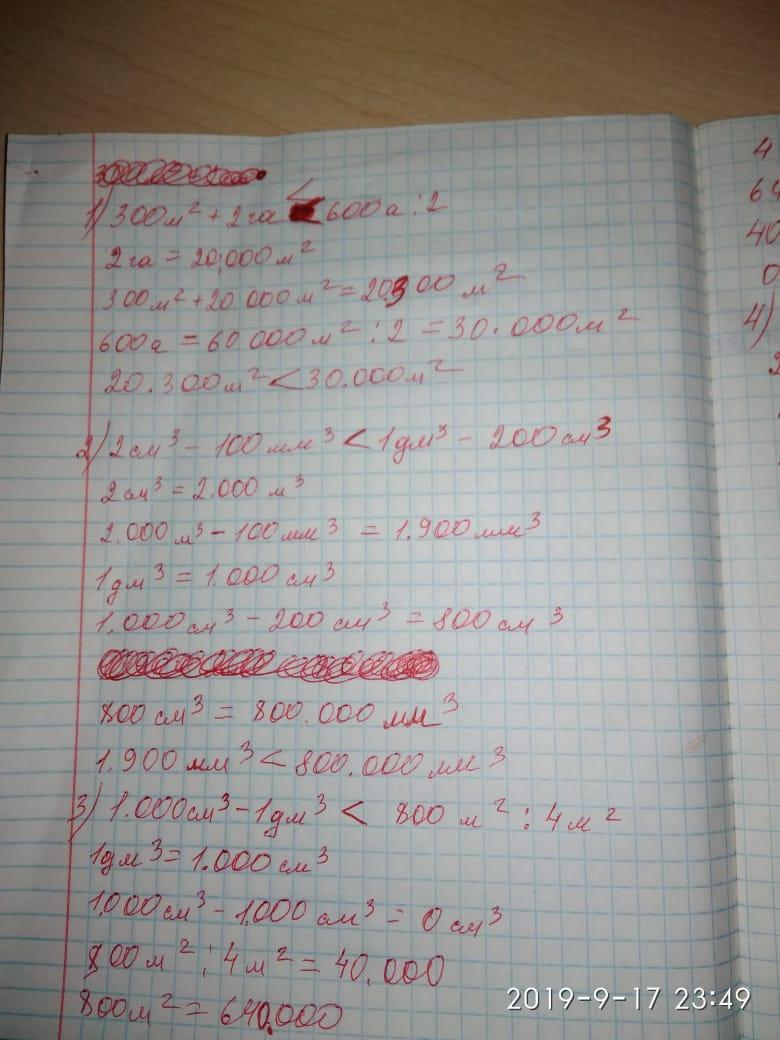 1) 300м² + 2га < 600а : 2
2га = 20,000м²
300м² + 20.000м² = 20.300 м²
600а = 60 000м² : 2 = 30.000м²
20.300м² < 30.000м²
2) 2см³ - 100мм³ < 1дм³ - 200см³
2см³ = 2.000 м³
2.000 м³ - 100мм³ = 1.900мм³
1дм³ = 1.000см³
1.000см³ - 200см³ = 800см³
800см³ = 800.000мм³
1.900мм³ < 800.000мм³
3) 1.000см³ - 1дм³ < 800 м² : 4м²
1дм³ = 1.000см³
1.000см³ - 1.000см³ = 0см³
800м² : 4м² = 40.000
800м² = 640.000
4
40
0
4)
2019-9-17 23:49